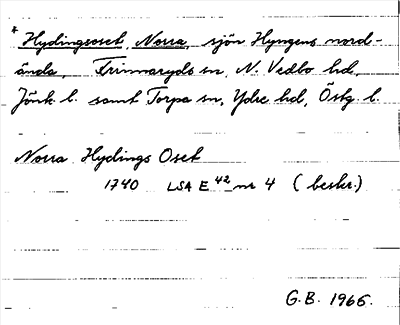 * Hydingsoset, Norra, sjön Hyngens nord-
ända, Frinnaryds sn, N. Vedbo hd,
Jönk. l. samt Torpa sn, Ydre hd, Östg. l.
Norra Hydings Oset
1740 LSA E 42 nr 4 (beskr.)
G.B. 1966.